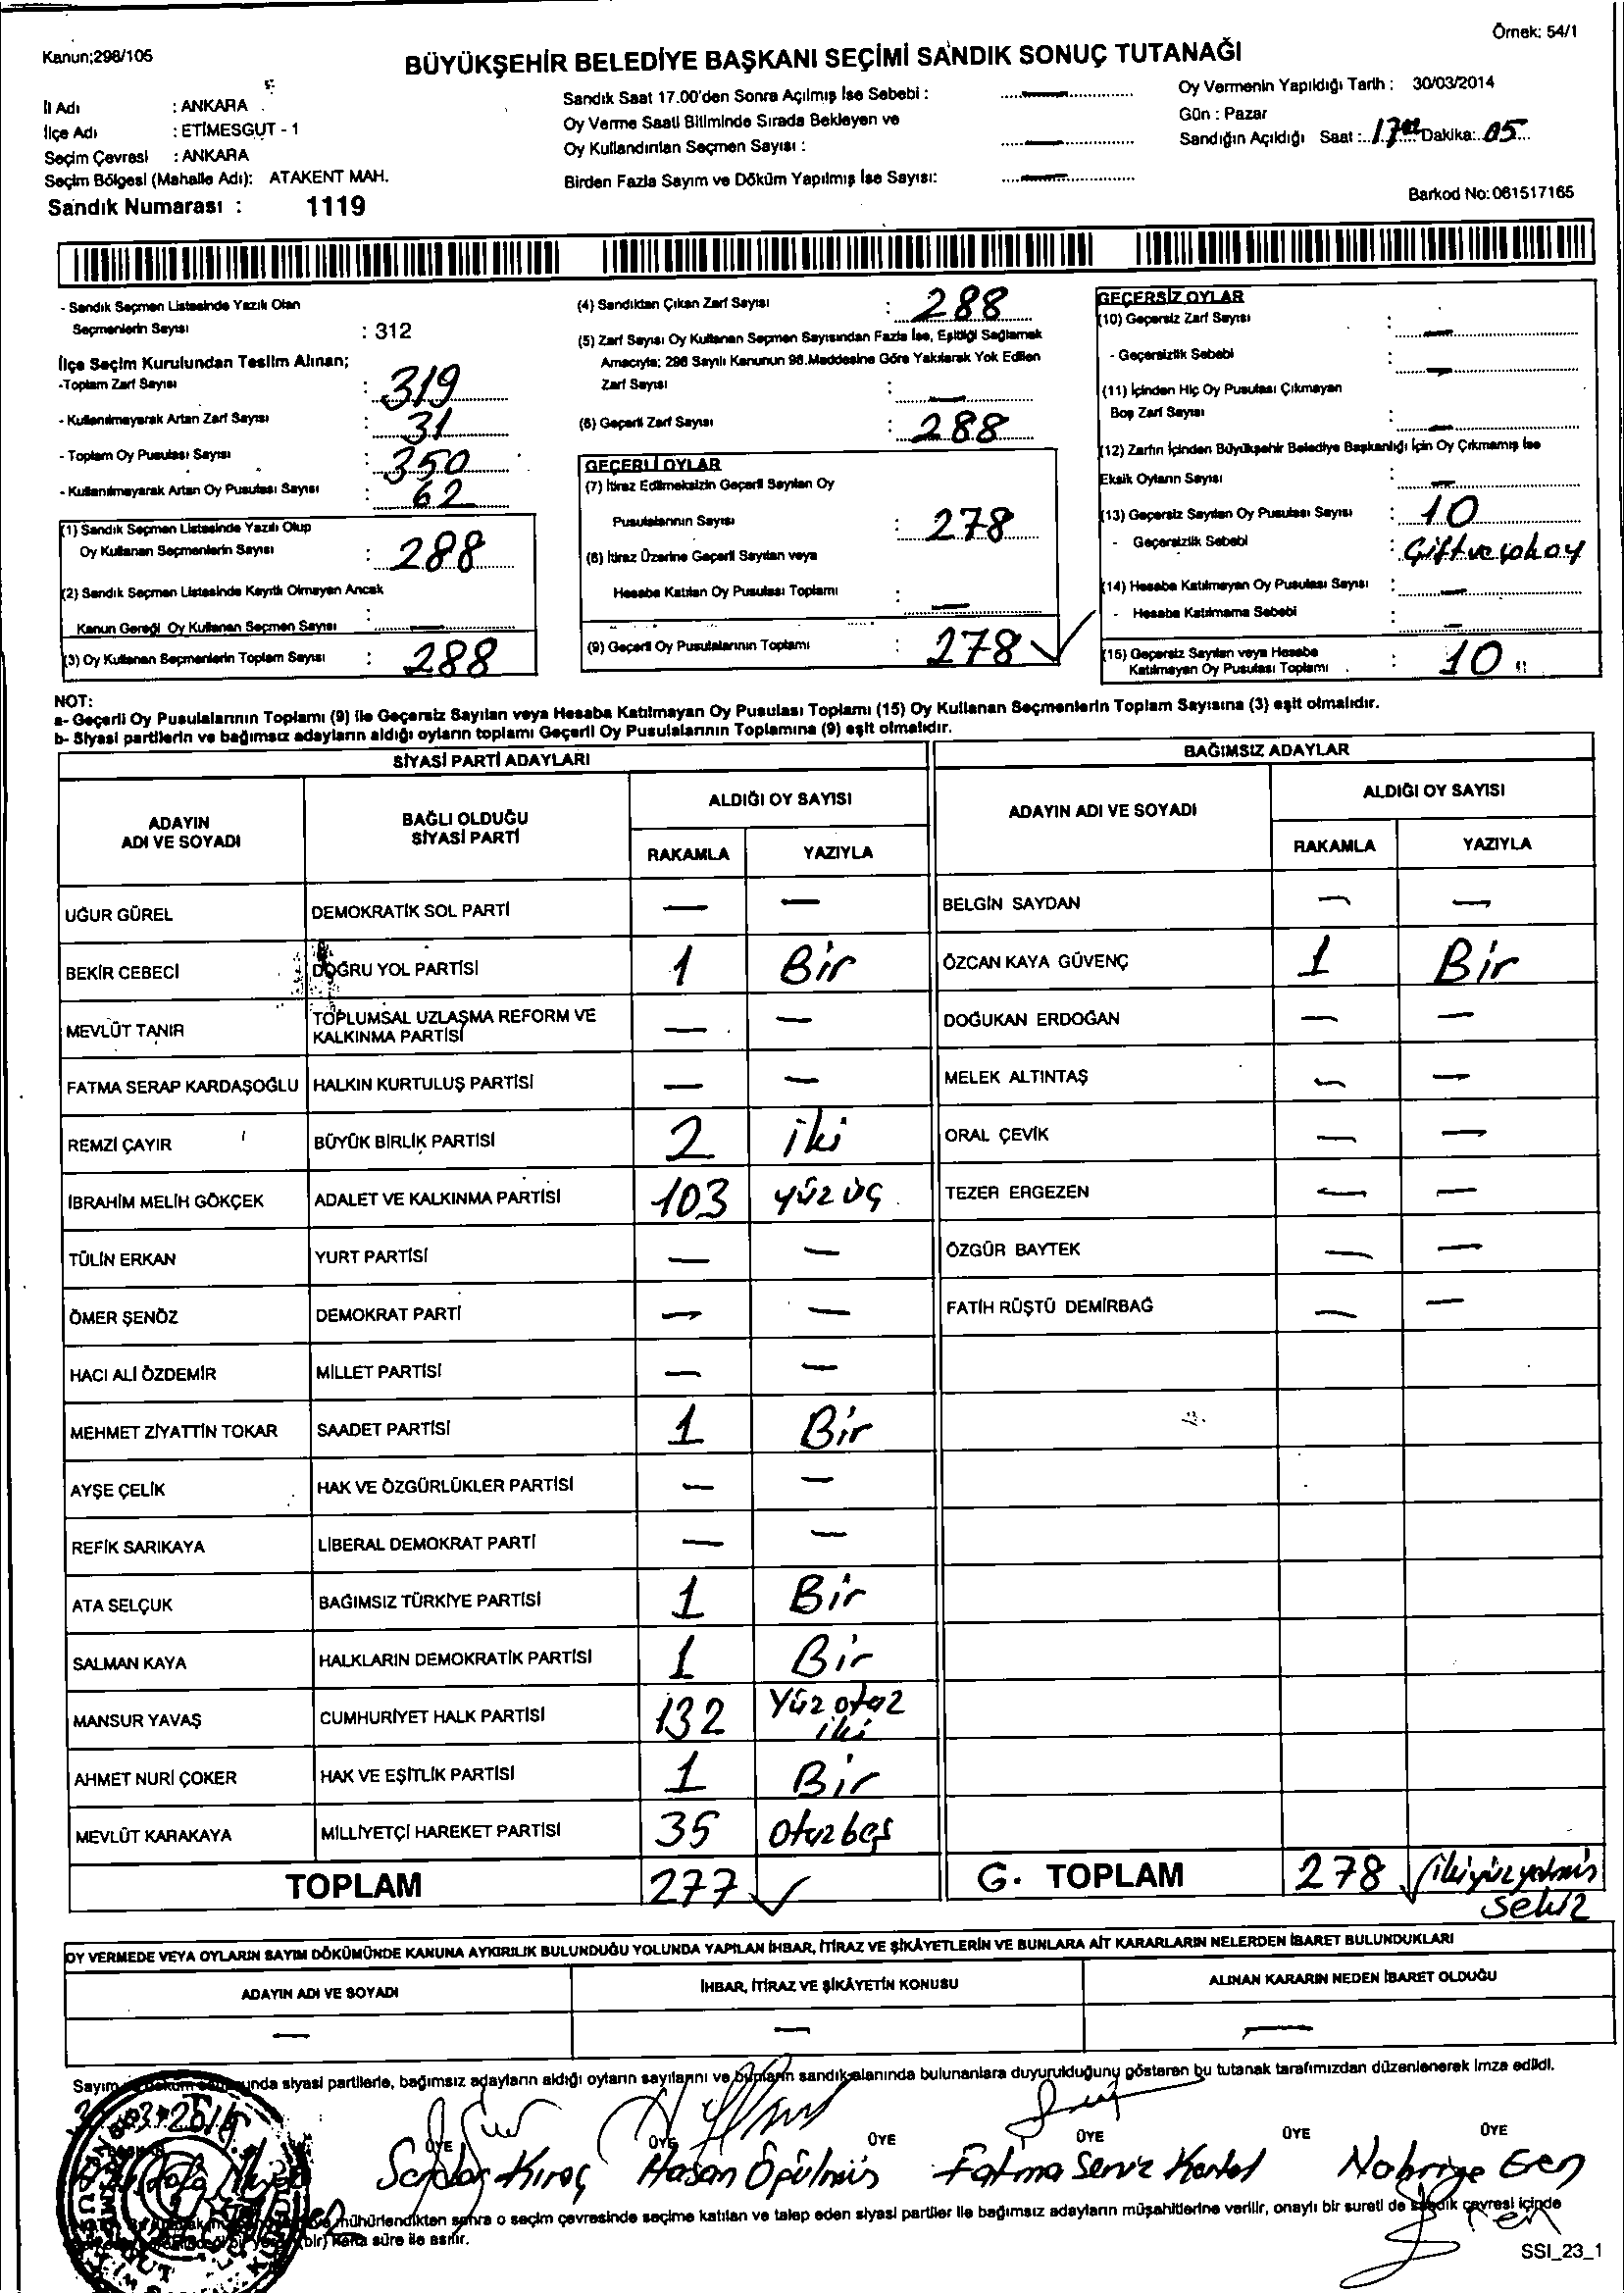 Örnek: 54/1
Kanun;298/105
BÜYÜKŞEHİR BELEDİYE BAŞKANI SEÇİMİ SANDIK SONUÇ TUTANAĞI
İl Adı : ANKARA
İlçe Adı : ETİMESGUT - 1
Seçim Çevresi : ANKARA
Seçim Bölgesi (Mahalle Adı): ATAKENT MAH.
Sandık Numarası : 1119
Sandık Saat 17.00'den Sonra Açılmış İse Sebebi : —
Oy Verme Saati Bitiminde Sırada Bekleyen ve
Oy Kullandırılan Seçmen Sayısı : —
Birden Fazla Sayım ve Döküm Yapılmış İse Sayısı: —
Oy Vermenin Yapıldığı Tarih : 30/03/2014
Gün : Pazar
Sandığın Açıldığı Saat : 17 00 Dakika: 05
Barkod No: 061517165
- Sandık Seçmen Listesinde Yazılı Olan
Seçmenlerin Sayısı : 312
İlçe Seçim Kurulundan Teslim Alınan;
-Toplam Zarf Sayısı : 319
- Kullanılmayarak Artan Zarf Sayısı : 31
- Toplam Oy Pusulası Sayısı : 350
- Kullanılmayarak Artan Oy Pusulası Sayısı : 62
(1) Sandık Seçmen Listesinde Yazılı Olup
Oy Kullanan Seçmenlerin Sayısı : 288
(2) Sandık Seçmen Listesinde Kayıtlı Olmayan Ancak
Kanun Gereği Oy Kullanan Seçmen Sayısı : —
(3) Oy Kullanan Seçmenlerin Toplam Sayısı : 288
(4) Sandıktan Çıkan Zarf Sayısı : 288
(5) Zarf Sayısı Oy Kullanan Seçmen Sayısından Fazla İse, Eşitliği Sağlamak
Amacıyla; 298 Sayılı Kanunun 98.Maddesine Göre Yakılarak Yok Edilen
Zarf Sayısı : —
(6) Geçerli Zarf Sayısı : 288
GEÇERLİ OYLAR
(7) İtiraz Edilmeksizin Geçerli Sayılan Oy
Pusulalarının Sayısı : 278
(8) İtiraz Üzerine Geçerli Sayılan veya
Hesaba Katılan Oy Pusulası Toplamı : —
(9) Geçerli Oy Pusulalarının Toplamı : 278 ✓
GEÇERSİZ OYLAR
(10) Geçersiz Zarf Sayısı : —
- Geçersizlik Sebebi : —
(11) İçinden Hiç Oy Pusulası Çıkmayan
Boş Zarf Sayısı : —
(12) Zarfın İçinden Büyükşehir Belediye Başkanlığı İçin Oy Çıkmamış İse
Eksik Oyların Sayısı : —
(13) Geçersiz Sayılan Oy Pusulası Sayısı : 10
- Geçersizlik Sebebi : Çift ve çok oy
(14) Hesaba Katılmayan Oy Pusulası Sayısı : —
- Hesaba Katılmama Sebebi : —
(15) Geçersiz Sayılan veya Hesaba
Katılmayan Oy Pusulası Toplamı : 10
NOT:
a- Geçerli Oy Pusulalarının Toplamı (9) ile Geçersiz Sayılan veya Hesaba Katılmayan Oy Pusulası Toplamı (15) Oy Kullanan Seçmenlerin Toplam Sayısına (3) eşit olmalıdır.
b- Siyasi partilerin ve bağımsız adayların aldığı oyların toplamı Geçerli Oy Pusulalarının Toplamına (9) eşit olmalıdır.
SİYASİ PARTİ ADAYLARI
ADAYIN ADI VE SOYADI
BAĞLI OLDUĞU SİYASİ PARTİ
ALDIĞI OY SAYISI
RAKAMLA YAZIYLA
UĞUR GÜREL DEMOKRATİK SOL PARTİ — —
BEKİR CEBECİ DOĞRU YOL PARTİSİ 1 Bir
MEVLÜT TANIR TOPLUMSAL UZLAŞMA REFORM VE KALKINMA PARTİSİ — —
FATMA SERAP KARDAŞOĞLU HALKIN KURTULUŞ PARTİSİ — —
REMZİ ÇAYIR BÜYÜK BİRLİK PARTİSİ 2 iki
İBRAHİM MELİH GÖKÇEK ADALET VE KALKINMA PARTİSİ 103 yüz üç
TÜLİN ERKAN YURT PARTİSİ — —
ÖMER ŞENÖZ DEMOKRAT PARTİ — —
HACI ALİ ÖZDEMİR MİLLET PARTİSİ — —
MEHMET ZİYATTİN TOKAR SAADET PARTİSİ 1 Bir
AYŞE ÇELİK HAK VE ÖZGÜRLÜKLER PARTİSİ — —
REFİK SARIKAYA LİBERAL DEMOKRAT PARTİ — —
ATA SELÇUK BAĞIMSIZ TÜRKİYE PARTİSİ 1 Bir
SALMAN KAYA HALKLARIN DEMOKRATİK PARTİSİ 1 Bir
MANSUR YAVAŞ CUMHURİYET HALK PARTİSİ 132 Yüz otuz iki
AHMET NURİ ÇOKER HAK VE EŞİTLİK PARTİSİ 1 Bir
MEVLÜT KARAKAYA MİLLİYETÇİ HAREKET PARTİSİ 35 otuz beş
TOPLAM 277 ✓
BAĞIMSIZ ADAYLAR
ADAYIN ADI VE SOYADI
ALDIĞI OY SAYISI
RAKAMLA YAZIYLA
BELGİN SAYDAN — —
ÖZCAN KAYA GÜVENÇ 1 Bir
DOĞUKAN ERDOĞAN — —
MELEK ALTINTAŞ — —
ORAL ÇEVİK — —
TEZER ERGEZEN — —
ÖZGÜR BAYTEK — —
FATİH RÜŞTÜ DEMİRBAĞ — —
G. TOPLAM 278 ✓ ikiyüz yetmiş sekiz
OY VERMEDE VEYA OYLARIN SAYIM DÖKÜMÜNDE KANUNA AYKIRILIK BULUNDUĞU YOLUNDA YAPILAN İHBAR, İTİRAZ VE ŞİKÂYETLERİN VE BUNLARA AİT KARARLARIN NELERDEN İBARET BULUNDUKLARI
ADAYIN ADI VE SOYADI İHBAR, İTİRAZ VE ŞİKÂYETİN KONUSU ALINAN KARARIN NEDEN İBARET OLDUĞU
— — —
Sayım siyasi partilerle, bağımsız adayların aldığı oyların sayılarını ve bunların sandık alanında bulunanlara duyurulduğunu gösteren bu tutanak tarafımızdan düzenlenerek imza edildi.
ÜYE ÜYE ÜYE ÜYE ÜYE ÜYE
Serdar Kıraç Hasan Öpülmüş Fatma Serviz Kartal Nahriye Eren
mühürlendikten sonra o seçim çevresinde seçime katılan ve talep eden siyasi partiler ile bağımsız adayların müşahitlerine verilir, onaylı bir sureti de sandık çevresi içinde
(bir) hafta süre ile asılır.
SSI_23_1